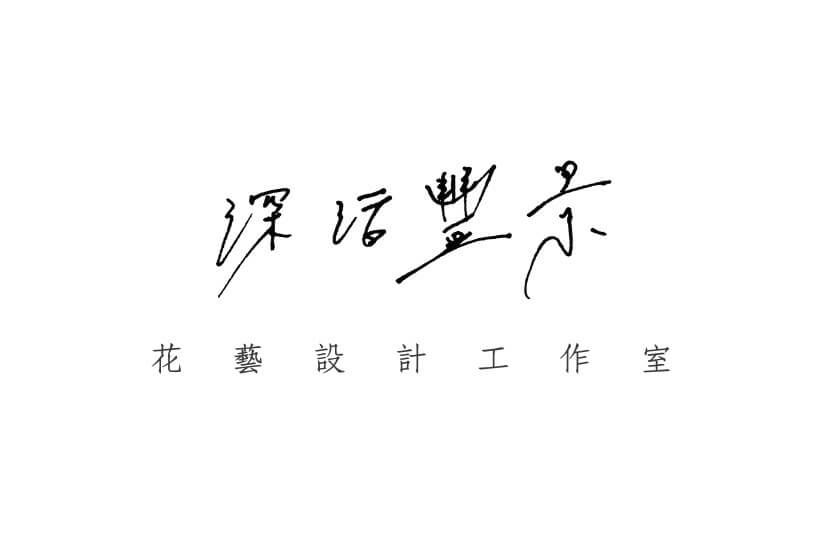 深活豐景
花藝設計工作室